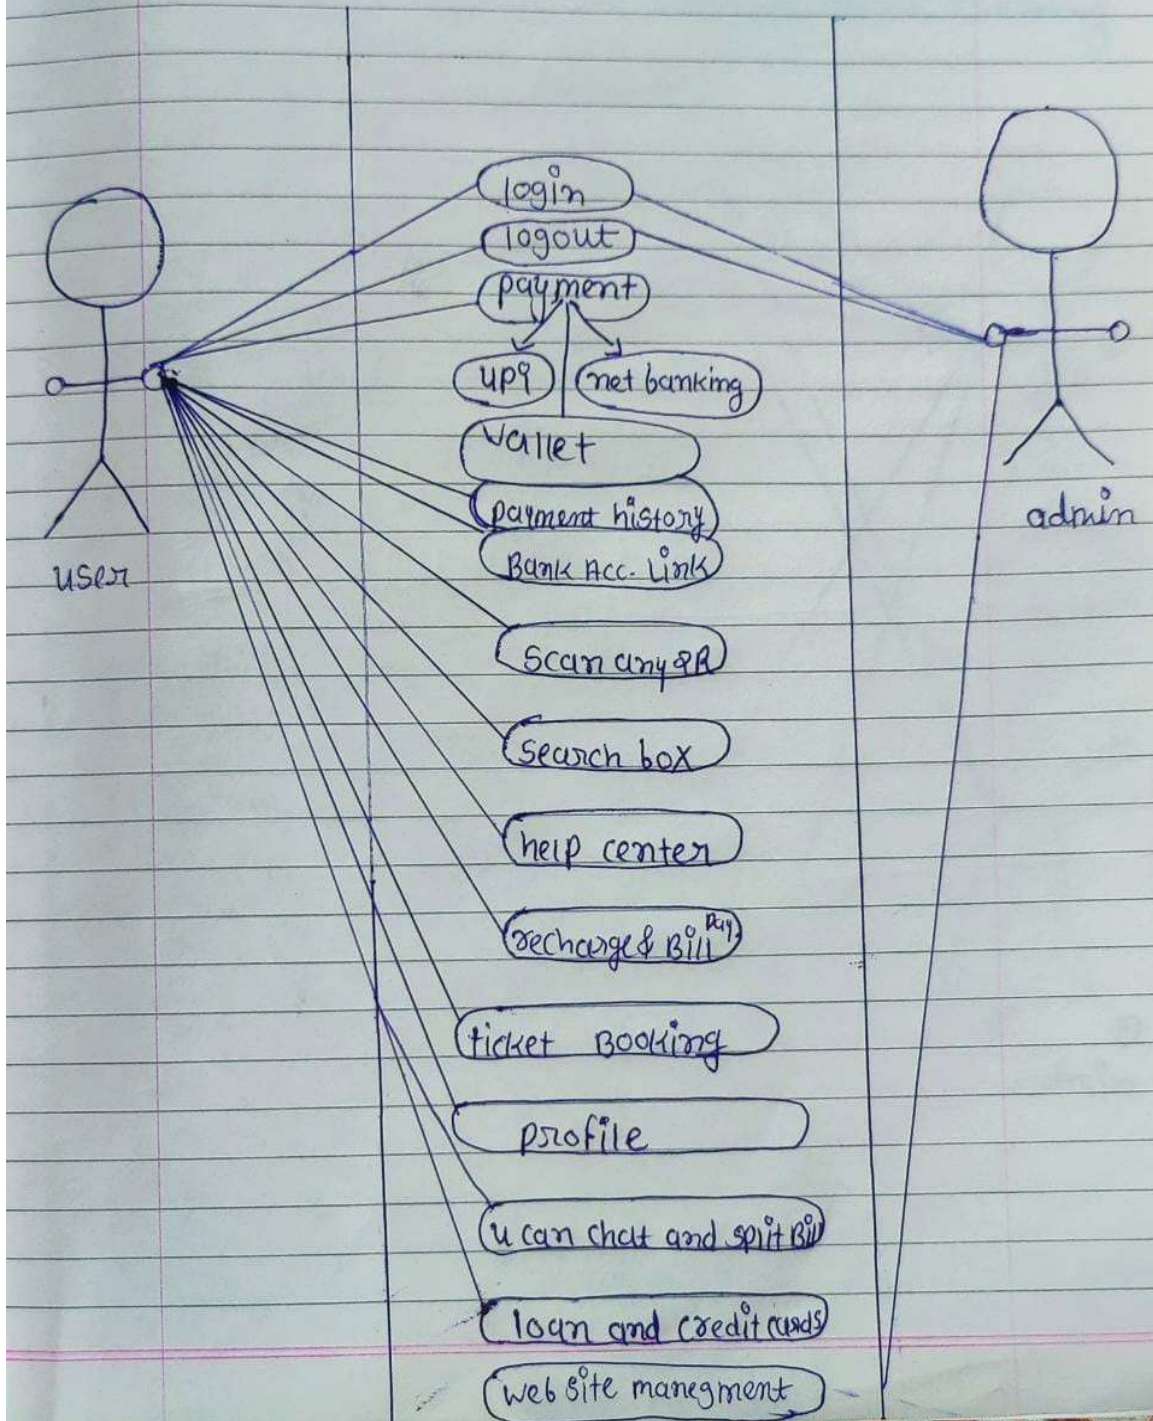 login
logout
payment
upi
net banking
wallet
payment history
user
admin
Bank Acc. Link
scan any QR
search box
help center
recharge & Bill Pay.
ticket Booking
profile
u can chat and split Bill
loan and credit cards
web site manegment